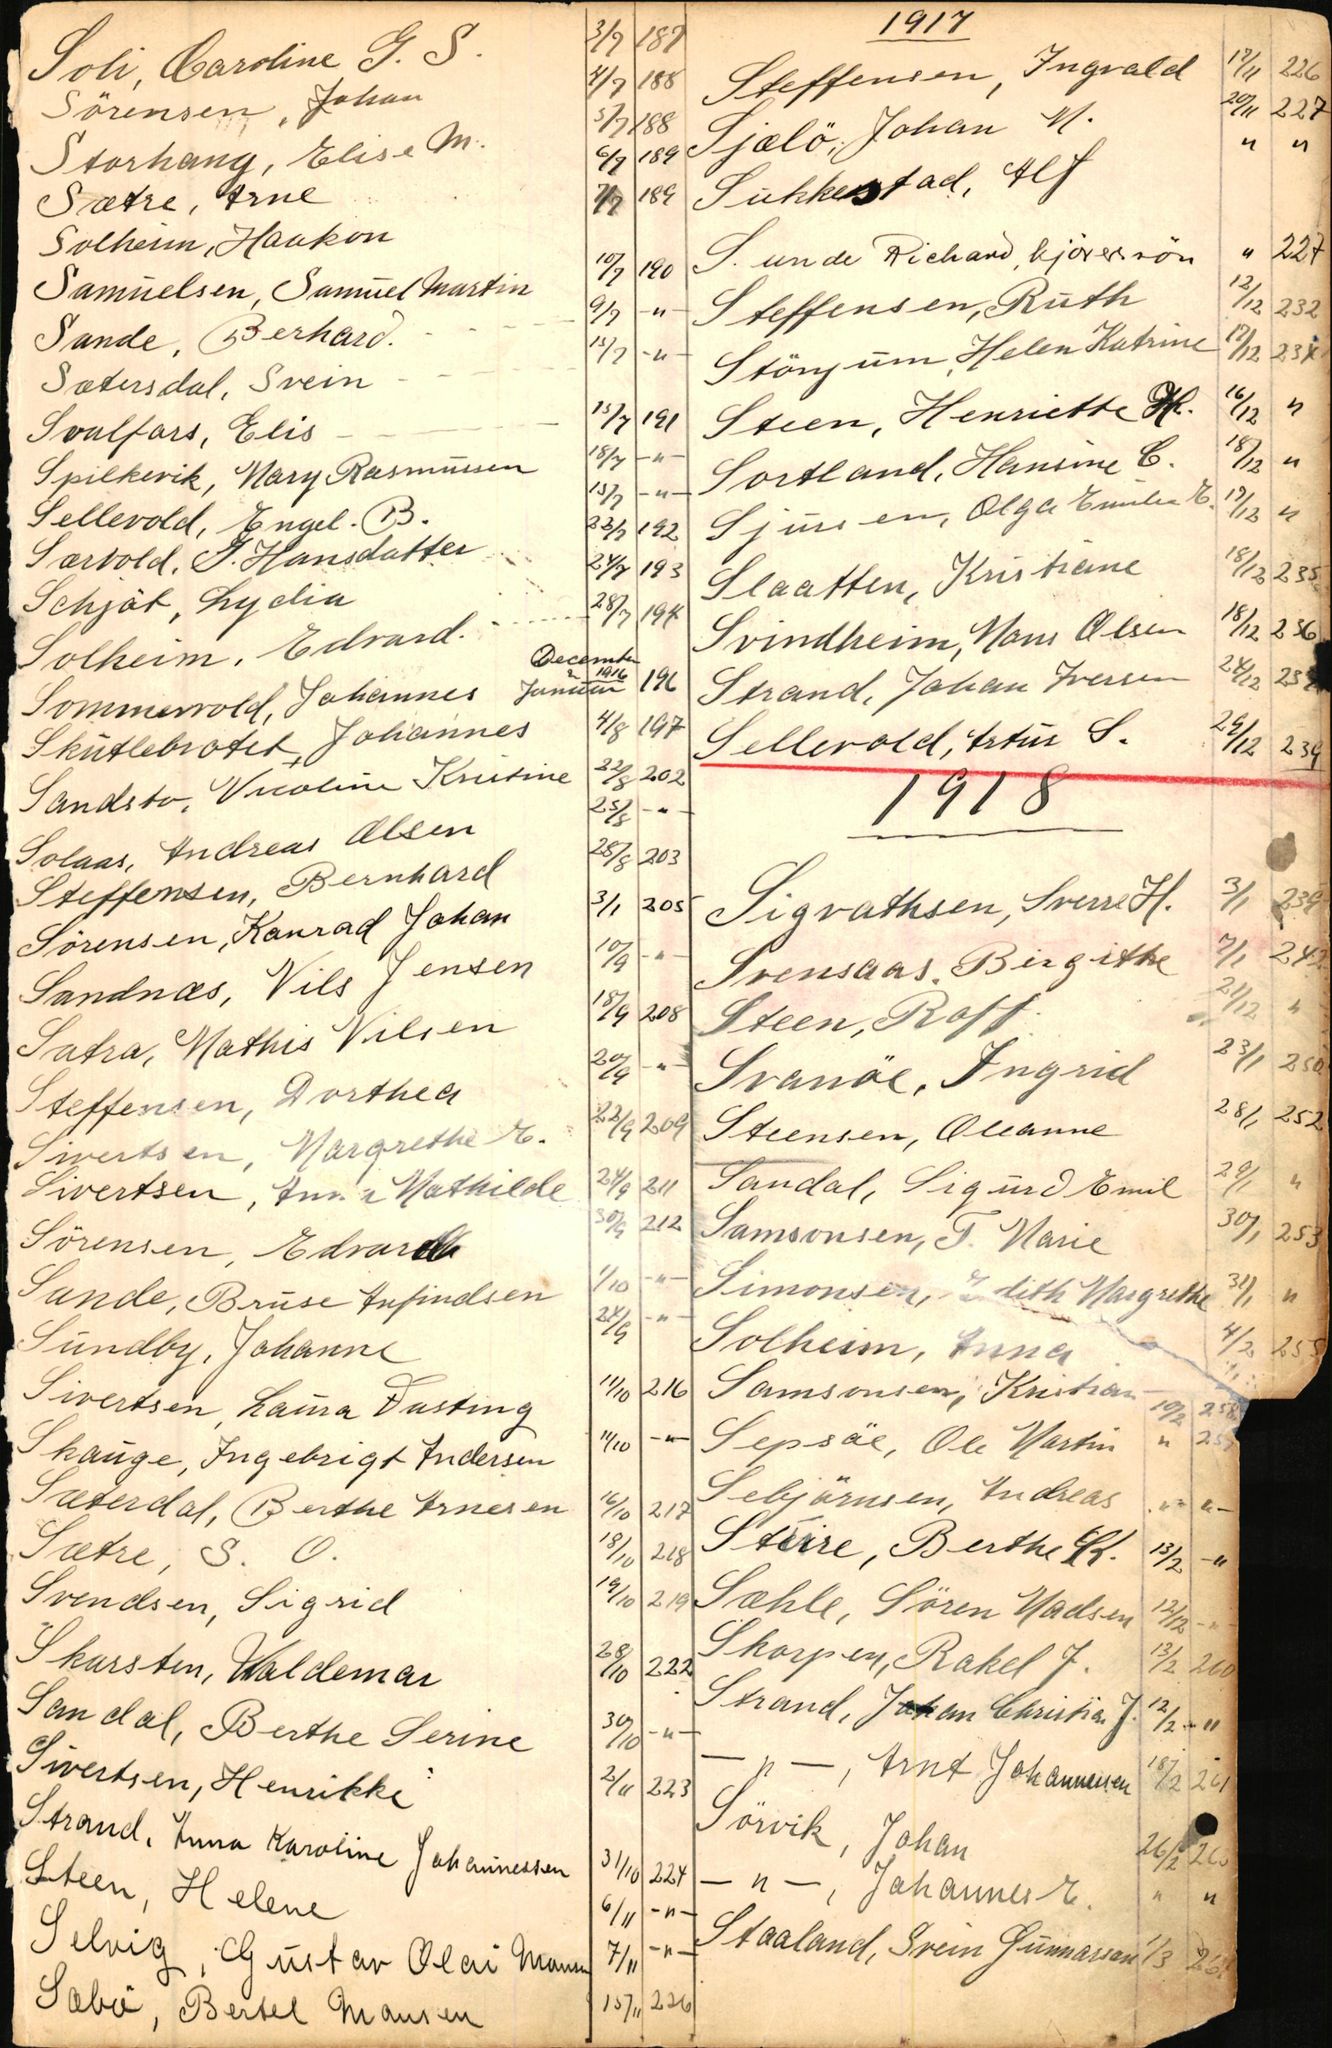 Soli, Caroline G. S. 3/7 187
Sörensen, Johan 4/7 188
Storhaug, Elise M. 5/7 188
Sætre, Arne 6/7 189
Solheim, Haakon 7/7 189
Samuelsen, Samuel Martin 10/7 190
Sande, Berhard. 9/7 -"-
Sætersdal, Svein 13/7 -"-
Svalfors, Elis 15/7 191
Spilkevik, Mary Rasmussen 18/7 -"-
Sellevold, Engel. B. 15/7 -"-
Særvold, G. Hansdatter 22/7 192
Schjöt, Lydia 24/7 193
Solheim, Edvard. 28/7 194
Sommervold, Johannes December 1916 Januar 196
Skutlebrotet, Johannes 4/8 197
Sandsto, Nicoline Kristine 22/8 202
Solaas, Andreas Olsen 25/8 -"-
Steffensen, Bernhard 28/8 203
Sörensen, Konrad Johan 3/1 205
Sandnæs, Nils Jensen 10/9 -"-
Satra, Mathis Nilsen 18/9 208
Steffensen, Dorthea 20/9 -"-
Sivertsen, Margrethe E. 22/9 209
Sivertsen, Anna Mathilde 24/9 211
Sörensen, Edvard 30/9 212
Sande, Bruse Anfindsen 1/10 -"-
Sundby, Johanne 24/9 -"-
Sivertsen, Laura Fasting 11/10 216
Skauge, Ingebrigt Andersen 11/10 -"-
Sæterdal, Berthe Arnesen 16/10 217
Sætre, S. O. 18/10 218
Svendsen, Sigrid 19/10 219
Skarsten, Waldemar 28/10 222
Sandal, Berthe Serine 30/10 -"-
Sivertsen, Henrikke 2/11 223
Strand, Anna Karoline Johannessen 31/10 224
Steen, Helene 6/11 -"-
Selvig, Gustav Olai Monsen 7/11 -"-
Sæbö, Bertel Monsen 15/11 226
1917
Steffensen, Ingvald 17/11 226
Sjælö, Johan M. 20/11 227
Sukkestad, Alf " "
S. unde Richard, " 227
Steffensen, Ruth 12/12 232
Störjum, Helen Katrine 17/12 234
Steen, Henriette H. 16/12 "
Sortland, Hansine C. 18/12 "
Sjursen, Olga Emilie E. 17/12 "
Slaatten, Kristiane 18/12 235
Svindheim, Mons Olsen 18/12 236
Strand, Johan Iversen 24/12
Sellevold, Artur S. 29/12 239
1918
Sigvathsen, Sverre H. 3/1 239
Svensaas, Birgithe 7/1 242
Steen, Rolf 21/12 "
Svanöe, Ingrid 23/1 250
Steensen, Oleanne 28/1 252
Sandal, Sigurd Emil 29/1 "
Samsonsen, T. Marie 30/1 253
Simonsen, Edith Margrethe 31/1 "
Solheim, Anna 4/2 255
Samsonsen, Kristian 10/2 258
Sepsöe, Ole Martin " 257
Sebjörnsen, Andreas -"- "-
Støire, Berthe K. 13/2 -"
Sæhle, Sören Madsen 12/12 -"-
Skorpen, Rakel J. 13/2 260
Strand, Johan Christian J. 12/2 -"
-"-, Arnt Johannessen 18/2 261
Sörvik, Johan 26/2
-"-, Johannes E. " "
Staaland, Svein Gunnarsen 1/3